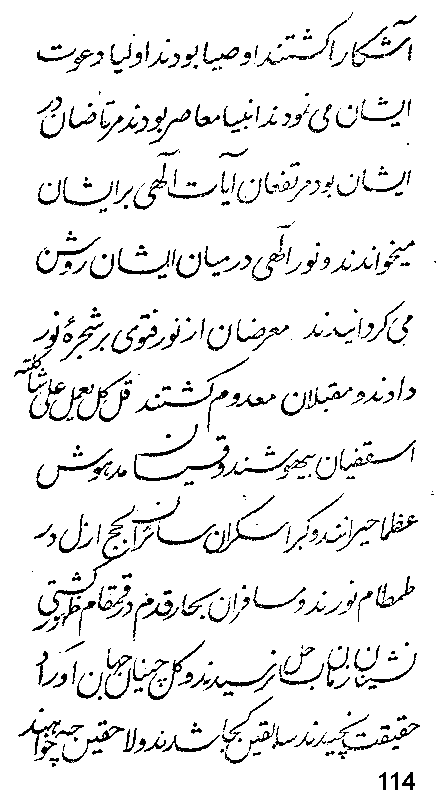 آشکار کشتند اوصیا بودند اولیا دعوت
ایشان می نمودند انبیا معاصر بودند مرتاضان در
ایشان بود مرتفعان آیات آلهی بر ایشان
میخواندند و نور آلهی در میان ایشان روشن
می کردانیدند معرضان از نور فتوی بر شجرهٔ نور
دادند و مقبلان معدوم کشتند قل کل یعمل علی شاکلته
اسقفیان بیهوشند و قسیسان مدهوش
عظما حیرانند و کبرا سکران سائران لجج ازل در
طمطام نورند و مسافران بحار قدم در قمقام ظهور کشتی
نشینان بساحل نرسیدند و کل چینان جهان اوراد
حقیقت نچیدند سابقین کجا شدند و لاحقین چه خواهند
114